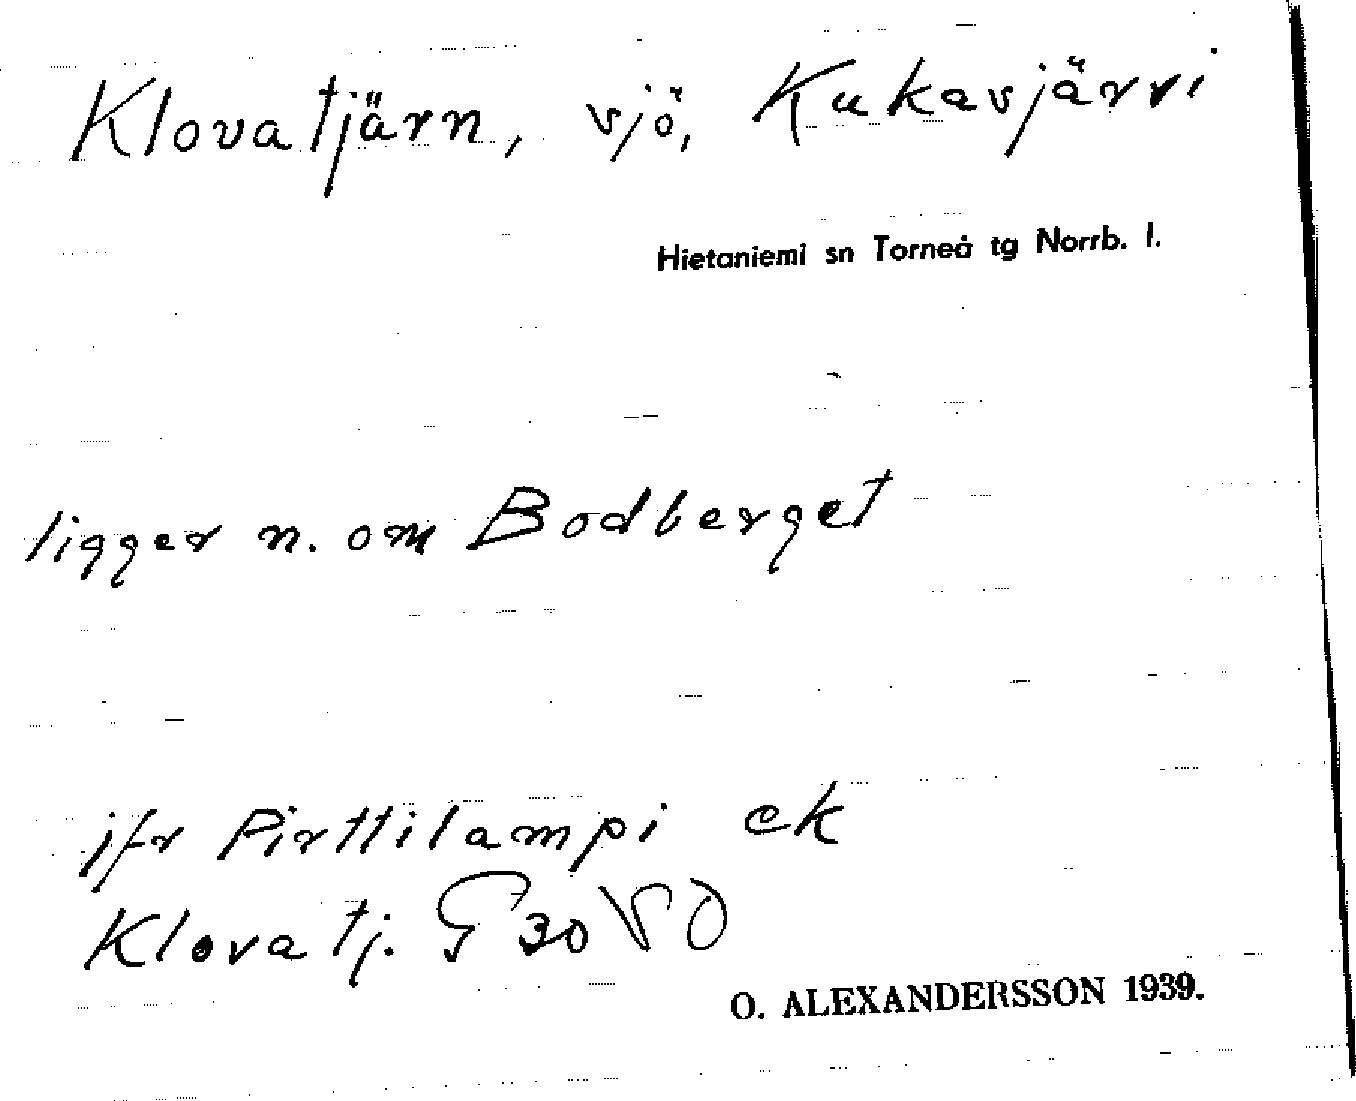 Klovatjärn, sjö, Kukasjärvi
Hietaniemi sn Torneå tg Norrb. l.
ligger n. om Bodberget
jfr Pirttilampi ek
Klovatj. G 30 SO
O. ALEXANDERSSON 1939.